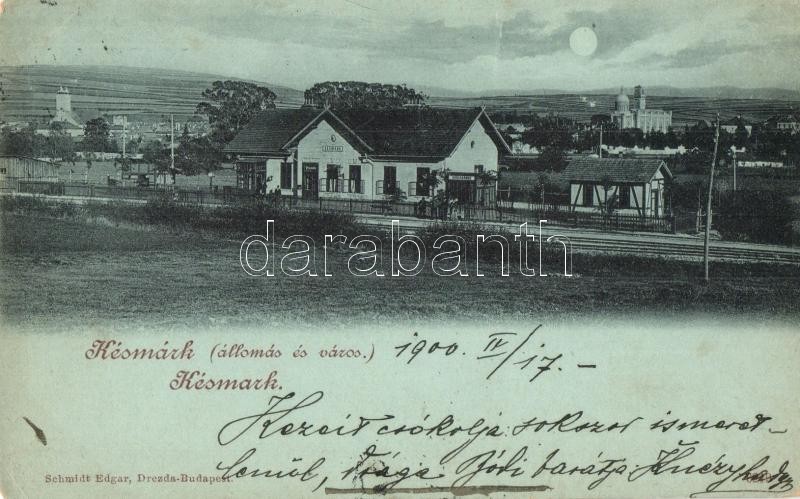 darabanth
Késmárk (állomás és város.) 1900. IV/17. –
Késmark.
Kezeit csókolja sokszor ismeret-
lenül, drága Bódi barátja
Schmidt Edgar, Drezda-Budapest.